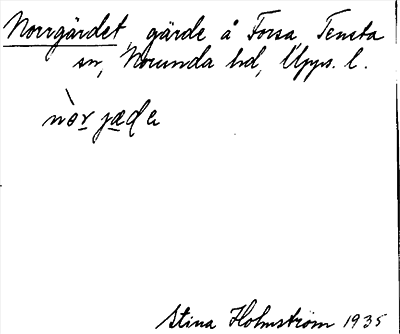 Norrgärdet, gärde å Forsa Tensta
sn, Norunda hd, Upps. l.
nòr jæde
Stina Holmström 1935